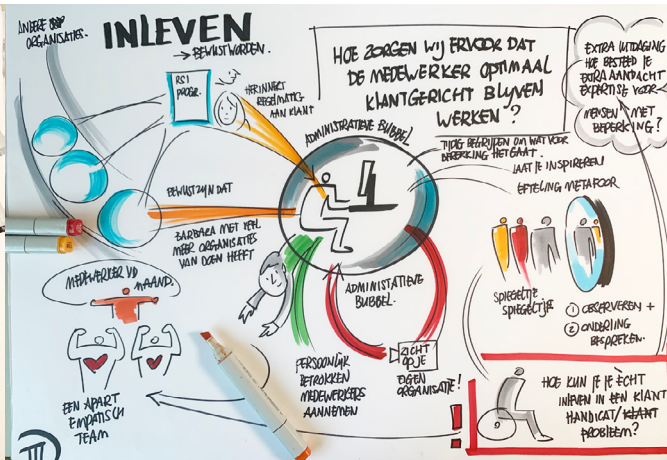 ANDERE
ORGANISATIES.
INLEVEN
→ BEWUSTWORDEN.
RSI
PROGR.
HERINNERT
REGELMATIG
AAN KLANT
HOE ZORGEN WIJ ERVOOR DAT
DE MEDEWERKER OPTIMAAL
KLANTGERICHT BLIJVEN
WERKEN"?
EXTRA UITDAGING
HOE BESTEED JE
EXTRA AANDACHT
EXPERTISE VOOR
MENSEN MET
BEPERKING?
ADMINISTRATIEVE BUBBEL
TIJDIG BEGRIJPEN OM WAT VOOR
BEPERKING HET GAAT.
LAAT JE INSPIREREN
EFTELING METAFOOR
BEWUST ZIJN DAT
BARBARA MET VEEL
MEER ORGANISATIES
VAN DOEN HEEFT
SPIEGELTJE
SPIEGELTJE
① OBSERVEREN +
② ONDERLING
BESPREKEN.
MEDEWERKER VD
MAAND.
ADMINISTATIEVE
BUBBEL.
PERSOONLIJK
BETROKKEN
MEDEWERKERS
AANNEMEN
ZICHT
OP JE
EIGEN
ORGANISATIE!
EEN APART
EMPATISCH
TEAM
HOE KUN JE JE ÈCHT
INLEVEN IN EEN KLANT
HANDICAT/KLANT
PROBLEEM?